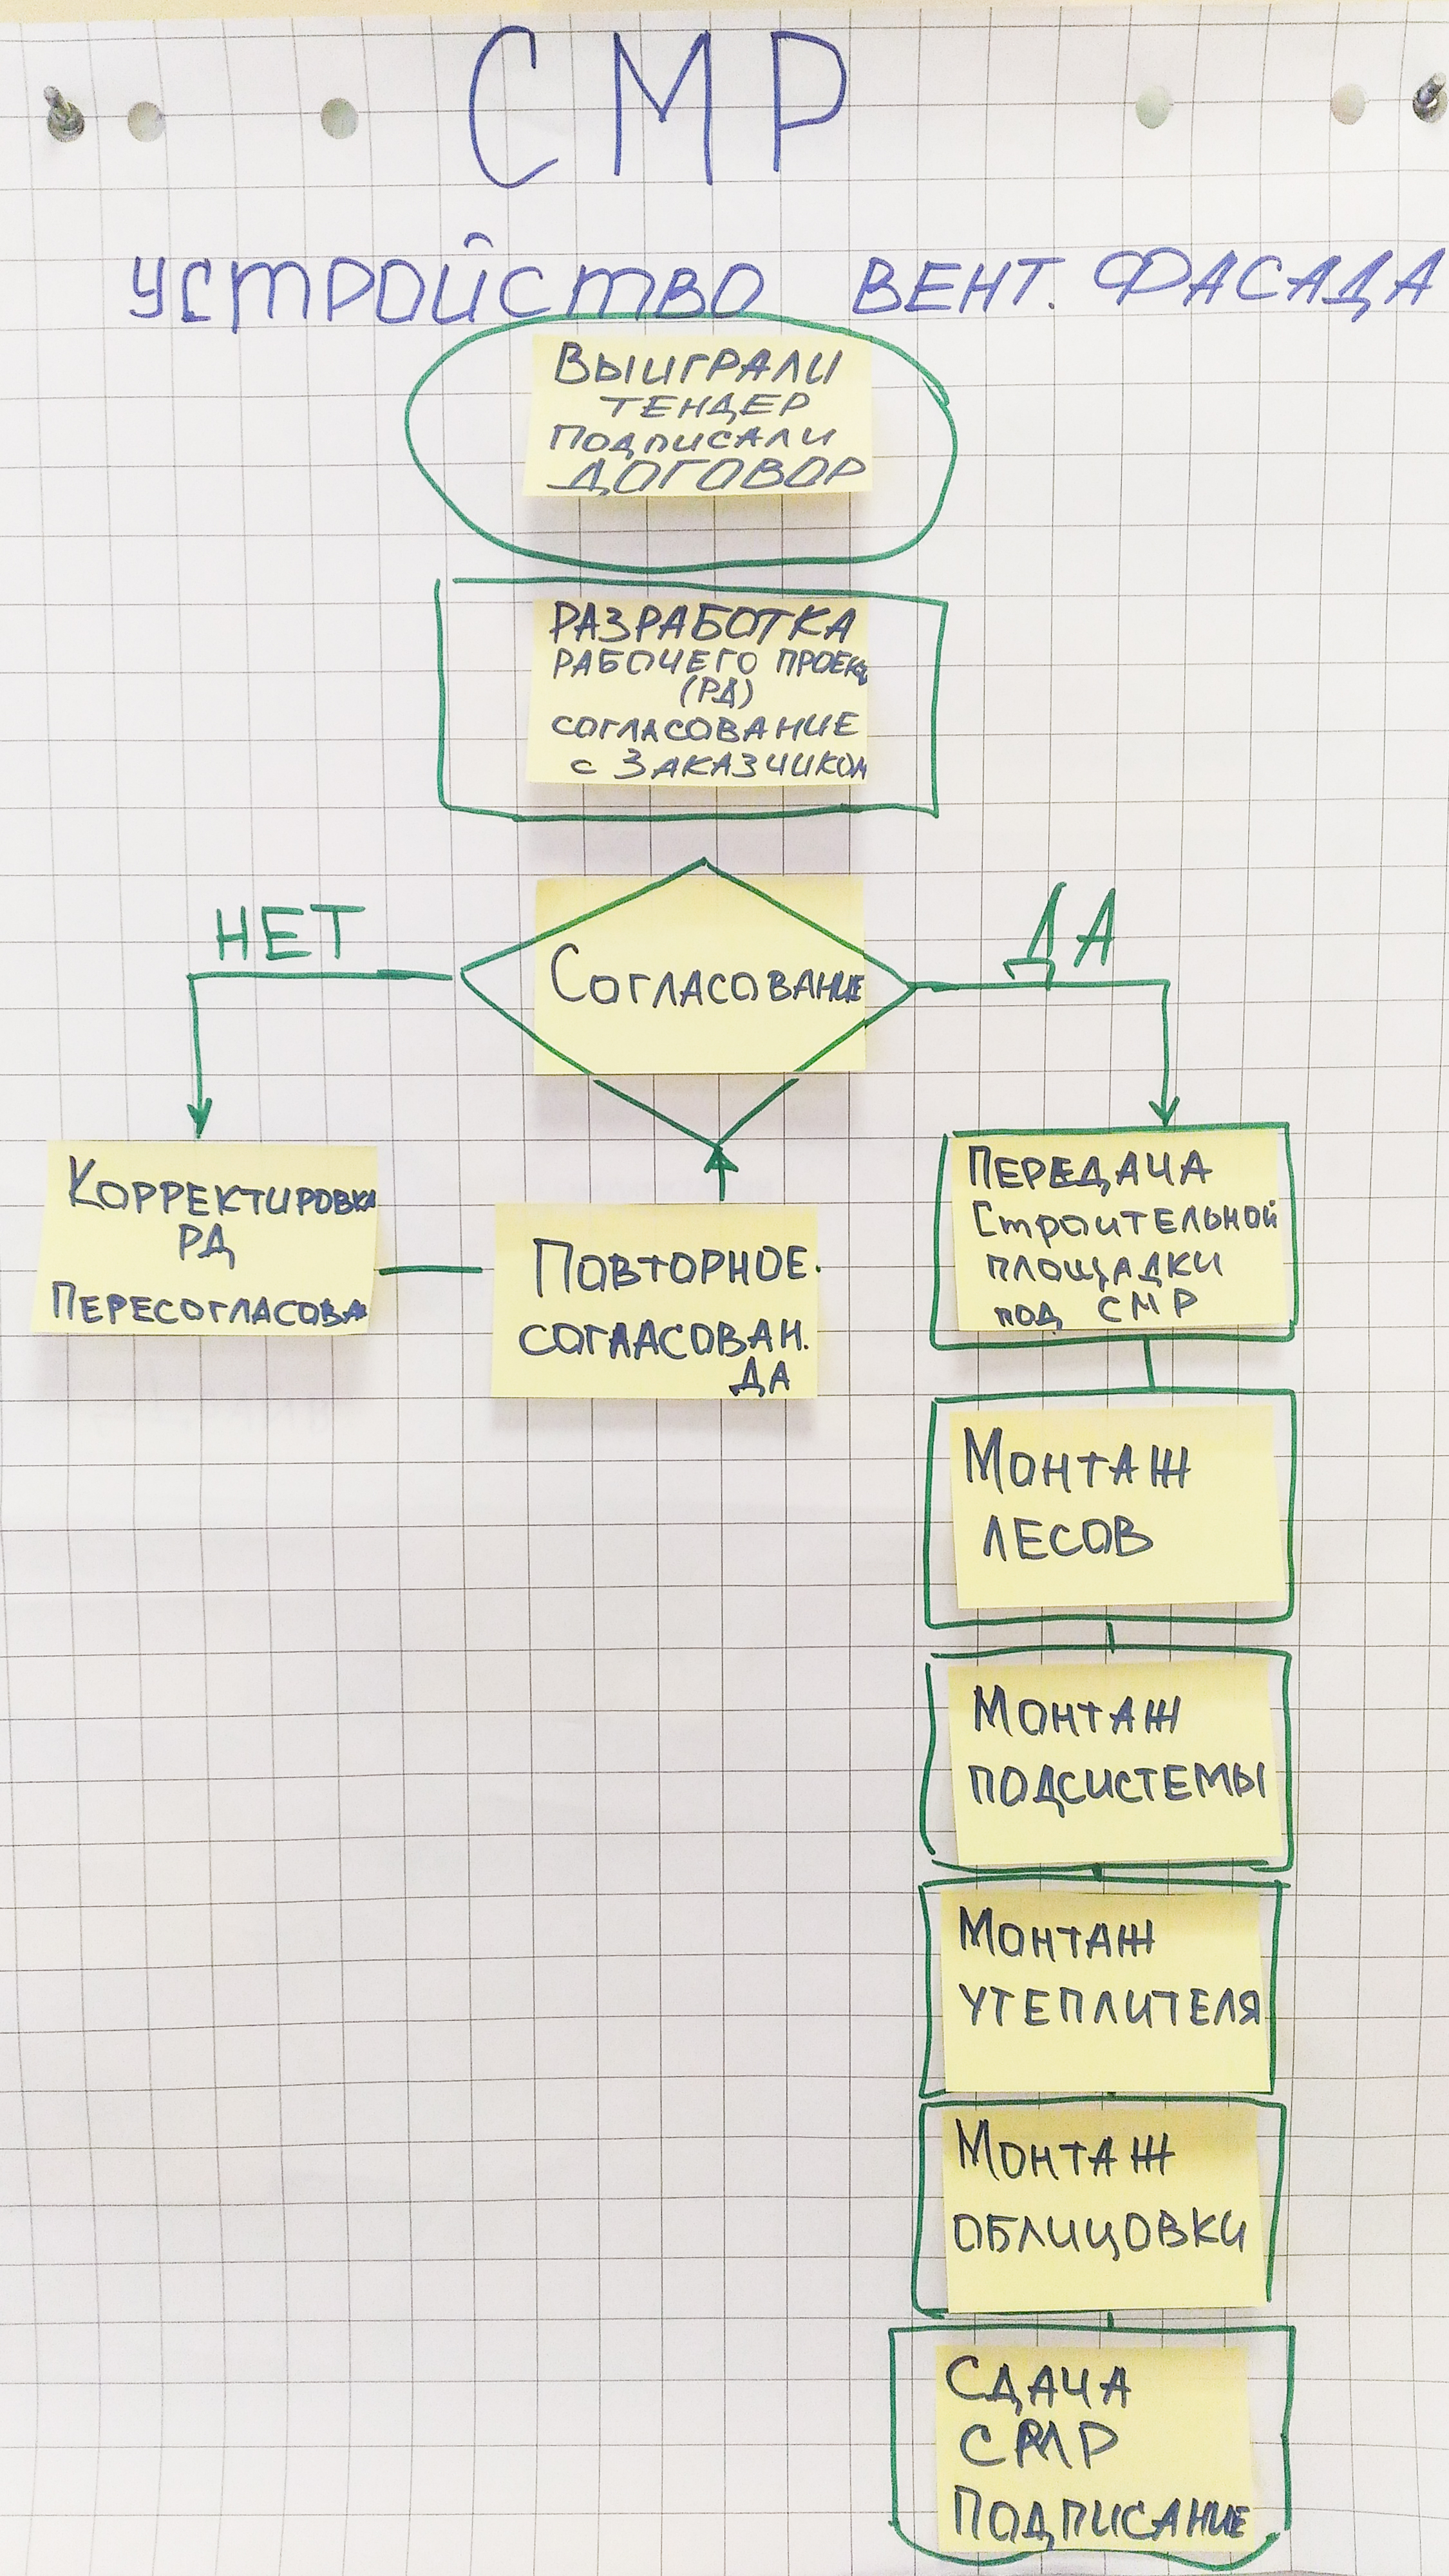 СМР
УСТРОЙСТВО ВЕНТ. ФАСАДА
ВЫИГРАЛИ
ТЕНДЕР
ПОДПИСАЛИ
ДОГОВОР
РАЗРАБОТКА
РАБОЧЕГО ПРОЕКта
(РД)
СОГЛАСОВАНИЕ
С ЗАКАЗЧИКОМ
НЕТ
СОГЛАСОВАНИЕ
ДА
КОРРЕКТИРОВКА
РД
ПЕРЕСОГЛАСОВА
ПОВТОРНОЕ.
СОГЛАСОВАН.
ДА
ПЕРЕДАЧА
СТРОИТЕЛЬНОЙ
ПЛОЩАДКИ
ПОД СМР
МОНТАЖ
ЛЕСОВ
МОНТАЖ
ПОДСИСТЕМЫ
МОНТАЖ
УТЕПЛИТЕЛЯ
МОНТАЖ
ОБЛИЦОВКИ
СДАЧА
СМР
ПОДПИСАНИЕ